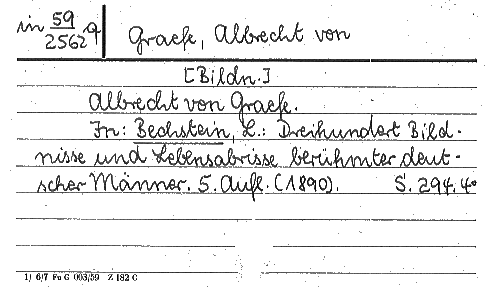 in 59/2562 q
Graefe, Albrecht von
[Bildn.]
Albrecht von Graefe.
In: Bechstein, L.: Dreihundert Bild-
nisse und Lebensabrisse berühmter deut-
scher Männer. 5. Aufl. (1890). S. 294. 4°
1) 6/7 Fu G 003/59 Z 182 C